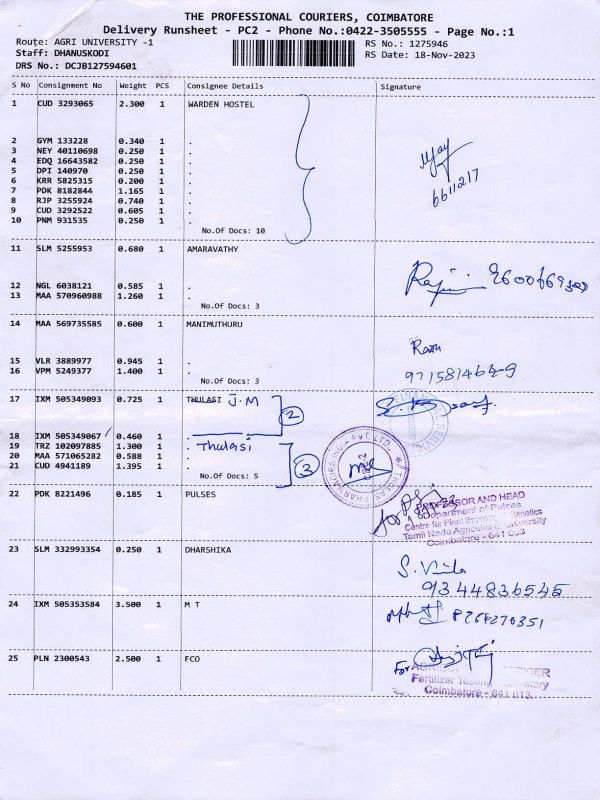 THE PROFESSIONAL COURIERS, COIMBATORE
Delivery Runsheet - PC2 - Phone No.:0422-3505555 - Page No.:1
Route: AGRI UNIVERSITY -1 RS No.: 1275946
Staff: DHANUSKODI RS Date: 18-Nov-2023
DRS No.: DCJB127594601
S No Consignment No Weight PCS Consignee Details Signature
1 CUD 3293065 2.300 1 WARDEN HOSTEL
2 GYM 133228 0.340 1 .
3 NEY 40110698 0.250 1 .
4 EDQ 16643582 0.250 1 .
5 DPI 140970 0.250 1 .
6 KRR 5825315 0.200 1 .
7 PDK 8182844 1.165 1 .
8 RJP 3255924 0.740 1 .
9 CUD 3292522 0.605 1 .
10 PNM 931535 0.250 1 .
No.Of Docs: 10
11 SLM 5255953 0.680 1 AMARAVATHY
12 NGL 6038121 0.585 1 .
13 MAA 570960988 1.260 1 .
No.Of Docs: 3
14 MAA 569735585 0.600 1 MANIMUTHURU
15 VLR 3889977 0.945 1 .
16 VPM 5249377 1.400 1 .
No.Of Docs: 3
17 IXM 505349093 0.725 1 THULASI J.M
2
18 IXM 505349067 0.460 1 .
19 TRZ 102097885 1.300 1 . Thulasi
20 MAA 571065282 0.588 1 .
3
21 CUD 4941189 1.395 1 .
No.Of Docs: 5
22 PDK 8221496 0.185 1 PULSES
PROFESSOR AND HEAD
Department of Pulses
Centre for Plant Breeding Genetics
Tamil Nadu Agricultural University
Coimbatore - 641 003
23 SLM 332993354 0.250 1 DHARSHIKA
9344836545
24 IXM 505353584 3.500 1 M T
25 PLN 2300543 2.500 1 FCO
For
Fertilizer Testing
Coimbatore - 641 013.